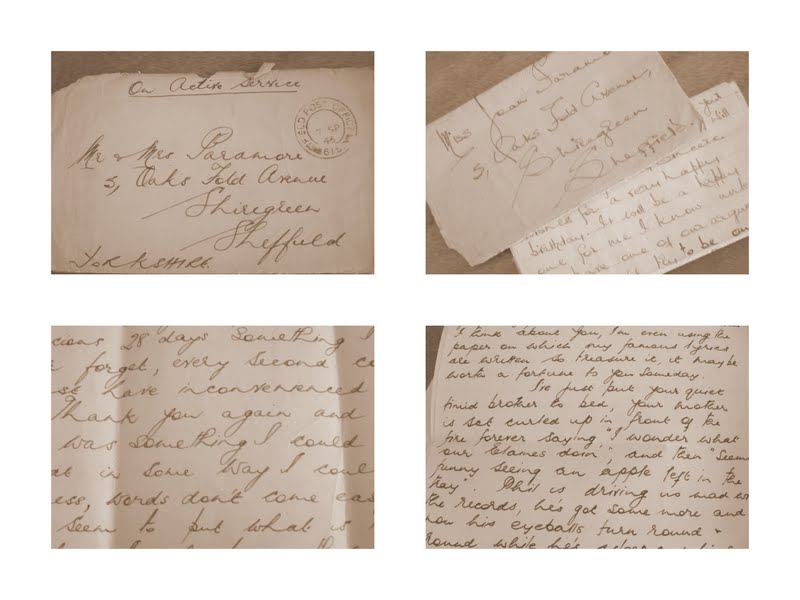 On Active Service
FIELD POST OFFICE
SP
45
615
Mr & Mrs Paramore
5, Oaks Fold Avenue
Shiregreen
Sheffield
YORKSHIRE.
Miss Jean Paramore
5, Oaks Fold Avenue,
Shiregreen
Sheffield.
for a very happy
birthday. It will be a happy
one for me I know
have one of our
to be on
28 days something I
forget, every second
have inconvenienced
Thank you again and
was something I could
in some way I
words don't come
seem to put what is
I think about you, I'm even using the
paper on which my famous lyrics
are written so treasure it, it maybe
worth a fortune to you someday.
I've just put your quiet
timid brother to bed, your mother
is sat curled up in front of the
fire forever saying, "I wonder what
our doin", and then "Seems
funny seeing an apple left in the
tray". Phil is driving us mad
the records, he's got some more and
now his eyeballs turn round &
round while he's